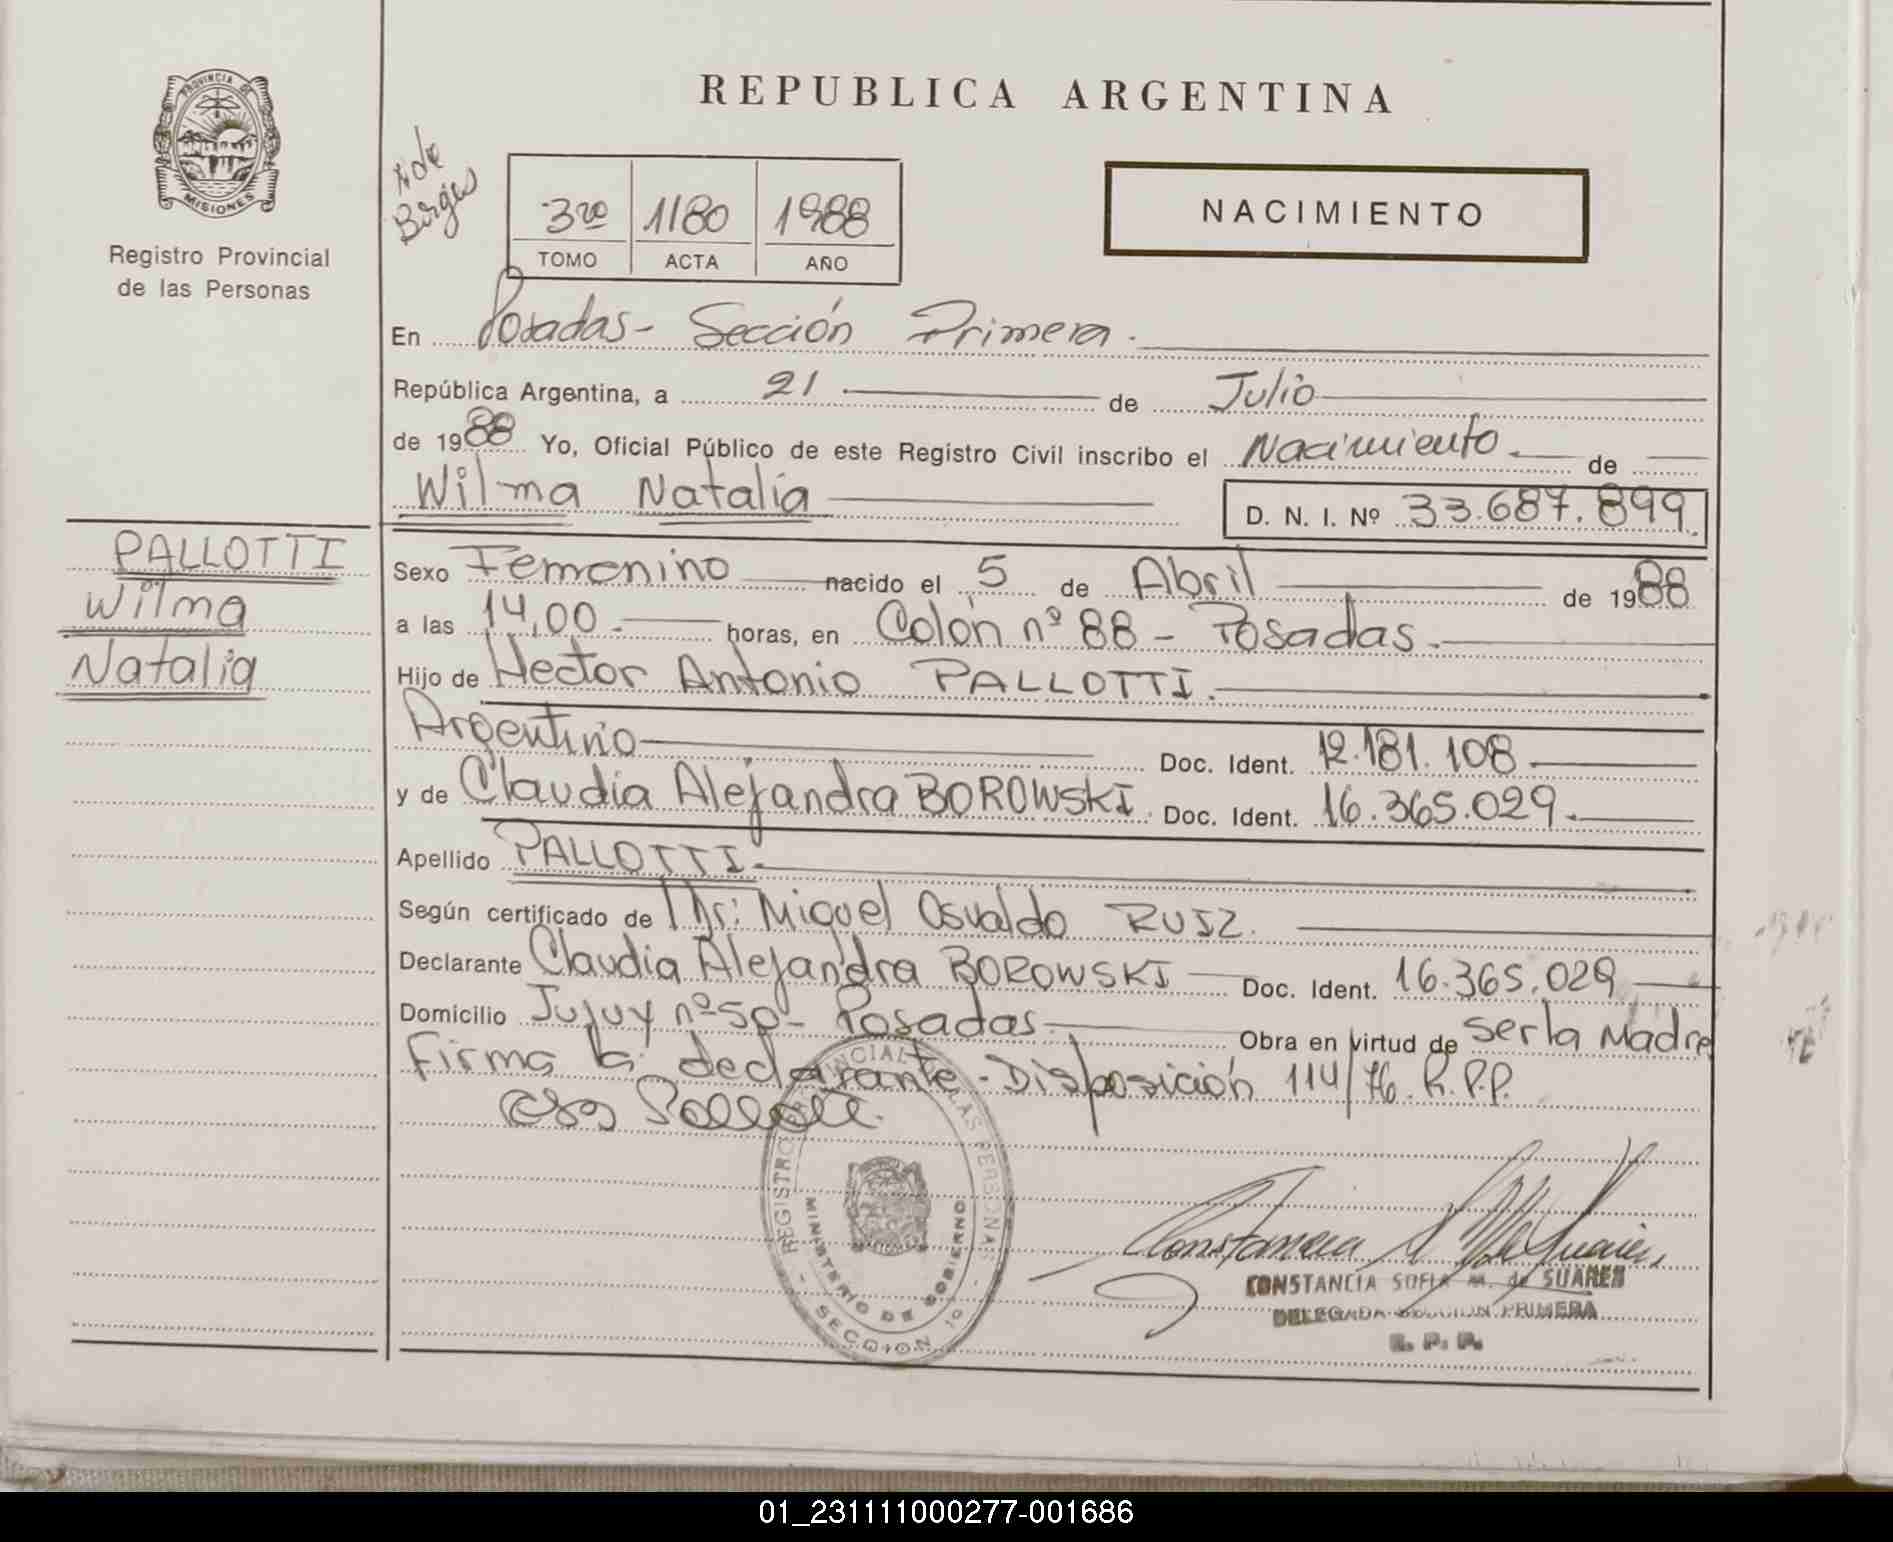 PROVINCIA DE
MISIONES
Registro Provincial
de las Personas
REPUBLICA ARGENTINA
NACIMIENTO
3ro 1180 1988
TOMO ACTA AÑO
En Posadas- Sección Primera.
República Argentina, a 21 de Julio
de 1988 Yo, Oficial Público de este Registro Civil inscribo el Nacimiento de
Wilma Natalia D. N. I. Nº 33.687.899
PALLOTTI
Wilma
Natalia
Sexo Femenino nacido el 5 de Abril de 1988
a las 14,00 horas, en Colón nº 88 - Posadas.
Hijo de Hector Antonio PALLOTTI.
Argentino Doc. Ident. 12.181.108
y de Claudia Alejandra BOROWSKI. Doc. Ident. 16.365.029.
Apellido PALLOTTI
Según certificado de Dr: Miguel Osvaldo RUIZ.
Declarante Claudia Alejandra BOROWSKI Doc. Ident. 16.365.029
Domicilio Jujuy nº 50 - Posadas Obra en virtud de ser la Madre
Firma la declarante - Disposición 114/76. R.P.P.
REGISTRO PROVINCIAL DE LAS PERSONAS
MINISTERIO DE GOBIERNO
- SECCION 1º -
CONSTANCIA SOFIA M. de SUAREZ
DELEGADA SECCION PRIMERA
R. P. P.
01_231111000277-001686